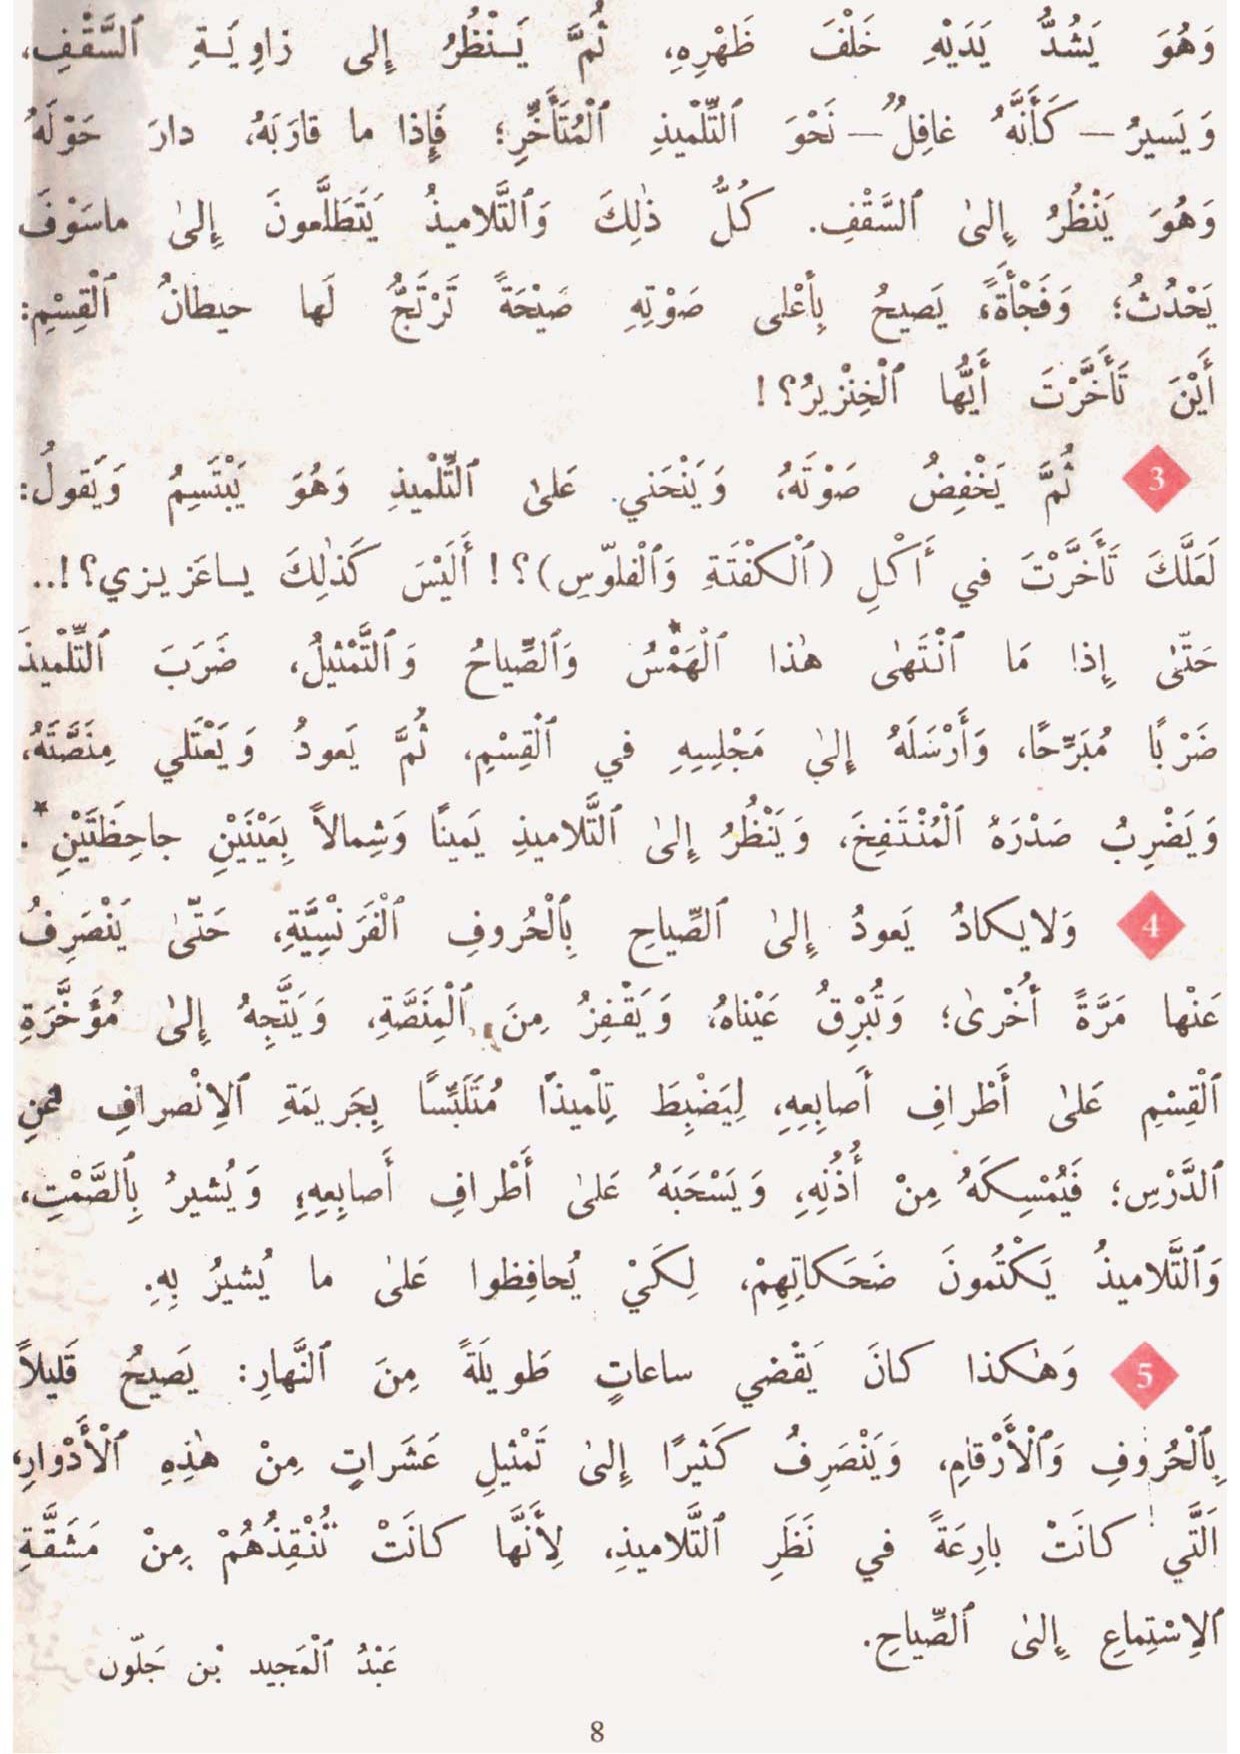 وَهُوَ يَشُدُّ يَدَيْهِ خَلْفَ ظَهْرِهِ، ثُمَّ يَنْظُرُ إِلى زاوِيَةِ ٱلسَّقْفِ،
وَيَسيرُ — كَأَنَّهُ غافِلٌ — نَحْوَ ٱلتِّلْميذِ ٱلْمُتَأَخِّرِ؛ فَإِذا ما قارَبَهُ، دارَ حَوْلَهُ
وَهُوَ يَنْظُرُ إِلىٰ ٱلسَّقْفِ. كُلُّ ذٰلِكَ وَٱلتَّلاميذُ يَتَطَلَّعونَ إِلىٰ ماسَوْفَ
يَحْدُثُ؛ وَفَجْأَةً، يَصيحُ بِأَعْلى صَوْتِهِ صَيْحَةً تَرْتَجُّ لَها حيطانُ ٱلْقِسْمِ:
أَيْنَ تَأَخَّرْتَ أَيُّها ٱلْخِنْزيرُ؟!
3 ثُمَّ يَخْفِضُ صَوْتَهُ، وَيَنْحَني عَلىٰ ٱلتِّلْميذِ وَهُوَ يَبْتَسِمُ وَيَقولُ:
لَعَلَّكَ تَأَخَّرْتَ في أَكْلِ (ٱلْكفْتَةِ وَٱلْفلوّسِ)؟! أَلَيْسَ كَذٰلِكَ ياعَزيزي؟!..
حَتّىٰ إِذا مَا ٱنْتَهىٰ هٰذا ٱلْهَمْسُ* وَٱلصِّياحُ وَٱلتَّمْثيلُ، ضَرَبَ ٱلتِّلْميذَ
ضَرْبًا مُبَرِّحًا، وَأَرْسَلَهُ إِلىٰ مَجْلِسِهِ في ٱلْقِسْمِ، ثُمَّ يَعودُ وَيَعْتَلي مِنَصَّتَهُ،
وَيَضْرِبُ صَدْرَهُ ٱلْمُنْتَفِخَ، وَيَنْظُرُ إِلىٰ ٱلتَّلاميذِ يَمينًا وَشِمالاً بِعَيْنَيْنِ جاحِظَتَيْنِ*.
4 وَلايكادُ يَعودُ إِلىٰ ٱلصِّياحِ بِٱلْحُروفِ ٱلْفَرَنْسِيَّةِ، حَتّىٰ يَنْصَرِفُ
عَنْها مَرَّةً أُخْرىٰ؛ وَتُبْرِقُ عَيْناهُ، وَيَقْفِزُ مِنَ ٱلْمِنَصَّةِ، وَيَتَّجِهُ إِلىٰ مُؤَخَّرَةِ
ٱلْقِسْمِ عَلىٰ أَطْرافِ أَصابِعِهِ، لِيَضْبِطَ تِلْميذًا مُتَلَبِّسًا بِجَريمَةِ ٱلاِنْصرافِ عَنِ
ٱلدَّرْسِ؛ فَيُمْسِكَهُ مِنْ أُذُنِهِ، وَيَسْحَبَهُ عَلىٰ أَطْرافِ أَصابِعِهِ؛ وَيُشيرُ بِٱلصَّمْتِ،
وَٱلتَّلاميذُ يَكْتُمونَ ضَحَكاتِهِمْ، لِكَيْ يُحافِظوا عَلىٰ ما يُشيرُ بِهِ.
5 وَهٰكذا كانَ يَقْضي ساعاتٍ طَويلَةً مِنَ ٱلنَّهارِ: يَصيحُ قَليلاً
بِٱلْحُروفِ وَٱلْأَرْقامِ، وَيَنْصَرِفُ كَثيرًا إِلىٰ تَمْثيلِ عَشَراتٍ مِنْ هٰذِهِ ٱلْأَدْوارِ،
ٱلَّتي كانَتْ بارِعَةً في نَظَرِ ٱلتَّلاميذِ، لِأَنَّها كانَتْ تُنْقِذُهُمْ مِنْ مَشَقَّةِ
ٱلاِسْتِماعِ إِلىٰ ٱلصِّياحِ.
عَبْدُ ٱلْمَجيد بْن جَلّون
8